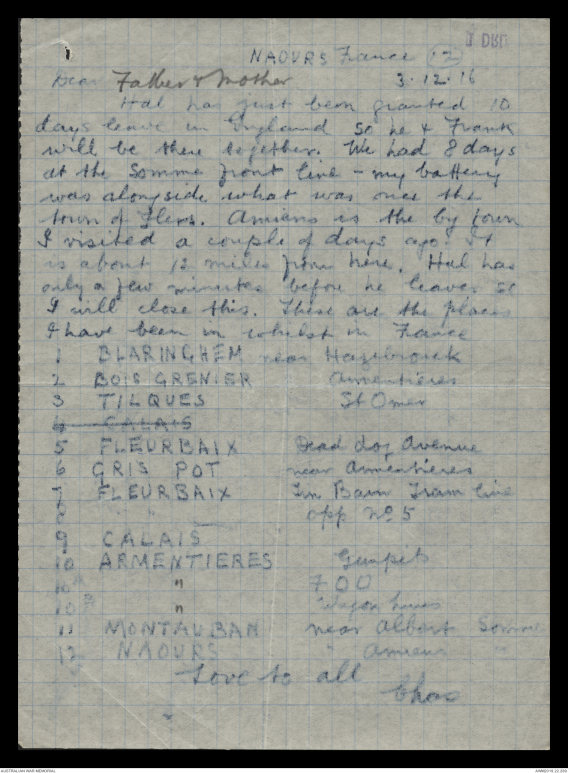 NAOURS France (2)
Dear Father & Mother 3.12.16
Hal has just been granted 10
days leave in England so he & Frank
will be there together. We had 8 days
at the Somme front line - my battery
was alongside what was once the
town of Flers. Amiens is the big town
I visited a couple of days ago. It
is about 12 miles from here. Hal has
only a few minutes before he leaves so
I will close this. These are the places
I have been in whilst in France
1 BLARINGHEM near Hazebrouck
2 BOIS GRENIER Armentieres
3 TILQUES St Omer
4 CALAIS
5 FLEURBAIX Dead dog Avenue
6 GRIS POT near Armentieres
7 FLEURBAIX Tin Barn Tram line
8 " " opp No 5
9 CALAIS
10 ARMENTIERES
10A " 700
10B " Wagon lines
11 MONTAUBAN near Albert Somme
12 NAOURS " Amiens "
Love to all
Chas
AUSTRALIAN WAR MEMORIAL